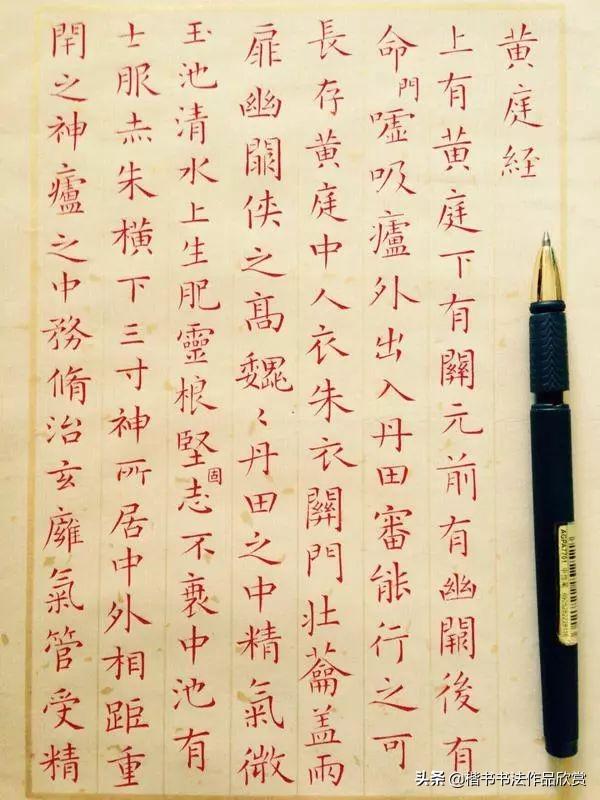 黄庭経
上有黄庭下有關元前有幽闕後有
命門嘘吸廬外出入丹田審能行之可
長存黄庭中人衣朱衣關門壮蘥盖兩
扉幽闕侠之髙巍〻丹田之中精氣微
玉池清水上生肥靈根堅固志不衰中池有
士服赤朱横下三寸神所居中外相距重
閇之神廬之中務脩治玄廱氣管受精
AGPA7701
头条 @楷书书法作品欣赏